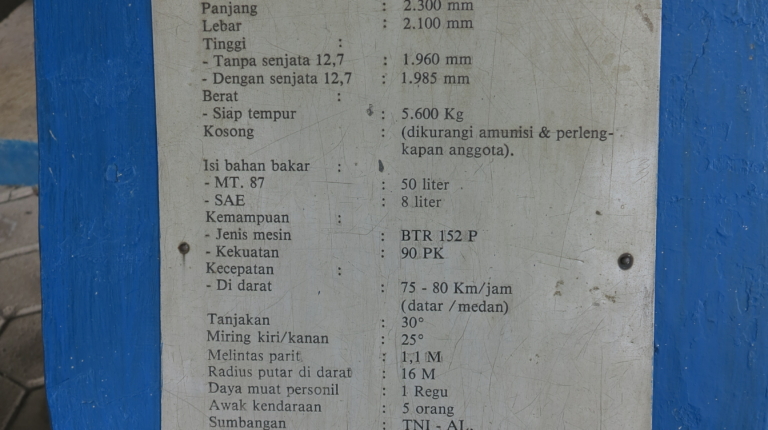 Panjang : 2.300 mm
Lebar : 2.100 mm
Tinggi :
- Tanpa senjata 12,7 : 1.960 mm
- Dengan senjata 12,7 : 1.985 mm
Berat :
- Siap tempur : 5.600 Kg
Kosong : (dikurangi amunisi & perleng-
kapan anggota).
Isi bahan bakar :
- MT. 87 : 50 liter
- SAE : 8 liter
Kemampuan :
- Jenis mesin : BTR 152 P
- Kekuatan : 90 PK
Kecepatan :
- Di darat : 75 - 80 Km/jam
(datar / medan)
Tanjakan : 30°
Miring kiri/kanan : 25°
Melintas parit : 1,1 M
Radius putar di darat : 16 M
Daya muat personil : 1 Regu
Awak kendaraan : 5 orang
Sumbangan : TNI - AL.